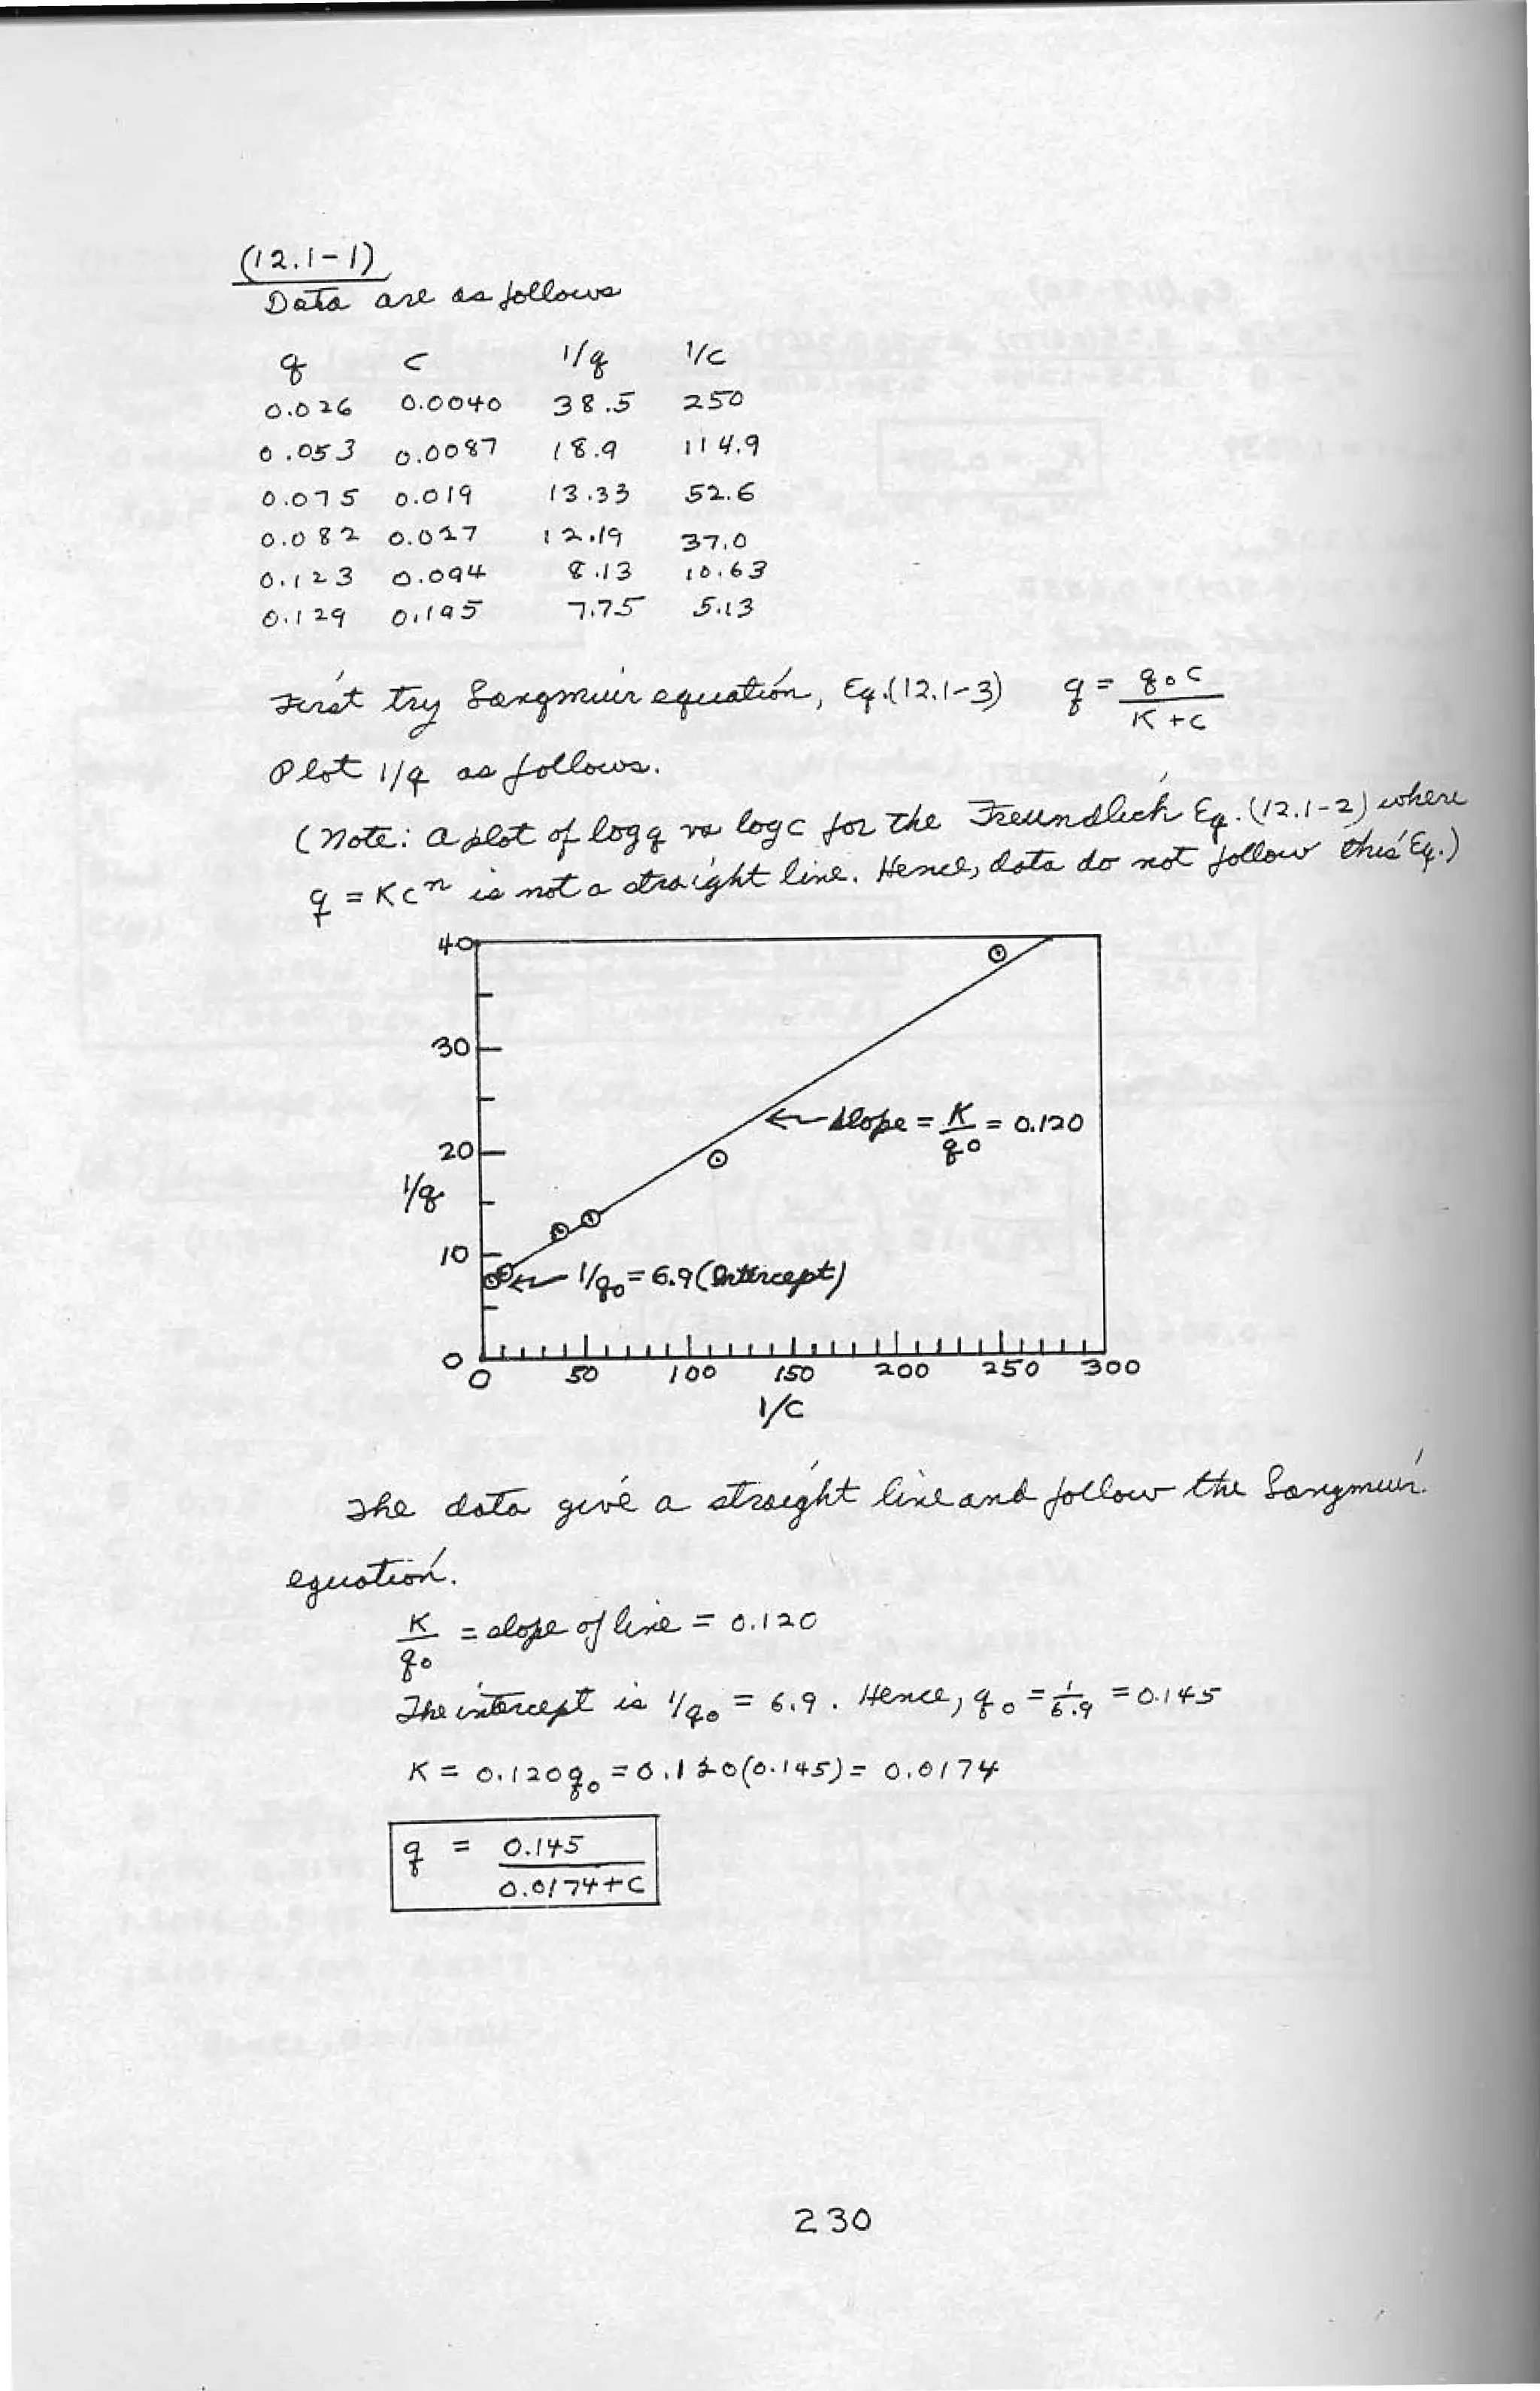 (12.1-1)
Data are as follows
q c 1/q 1/c
0.026 0.0040 38.5 250
0.053 0.0087 18.9 114.9
0.075 0.019 13.33 52.6
0.082 0.027 12.19 37.0
0.123 0.094 8.13 10.63
0.129 0.195 7.75 5.13
First try Langmuir equation, Eq.(12.1-3) q = q₀c / K+c
Plot 1/q as follows.
(Note: a plot of log q vs log c for the Freundlich Eq. (12.1-2) where
q = Kcⁿ is not a straight line. Hence, data do not follow this Eq.)
40
30
slope = K/q₀ = 0.120
20
1/q
10
1/q₀ = 6.9 (Intercept)
0
0 50 100 150 200 250 300
1/c
The data give a straight line and follow the Langmuir
equation.
K/q₀ = slope of line = 0.120
The intercept is 1/q₀ = 6.9. Hence, q₀ = 1/6.9 = 0.145
K = 0.120q₀ = 0.120(0.145) = 0.0174
q = 0.145 / 0.0174+c
230